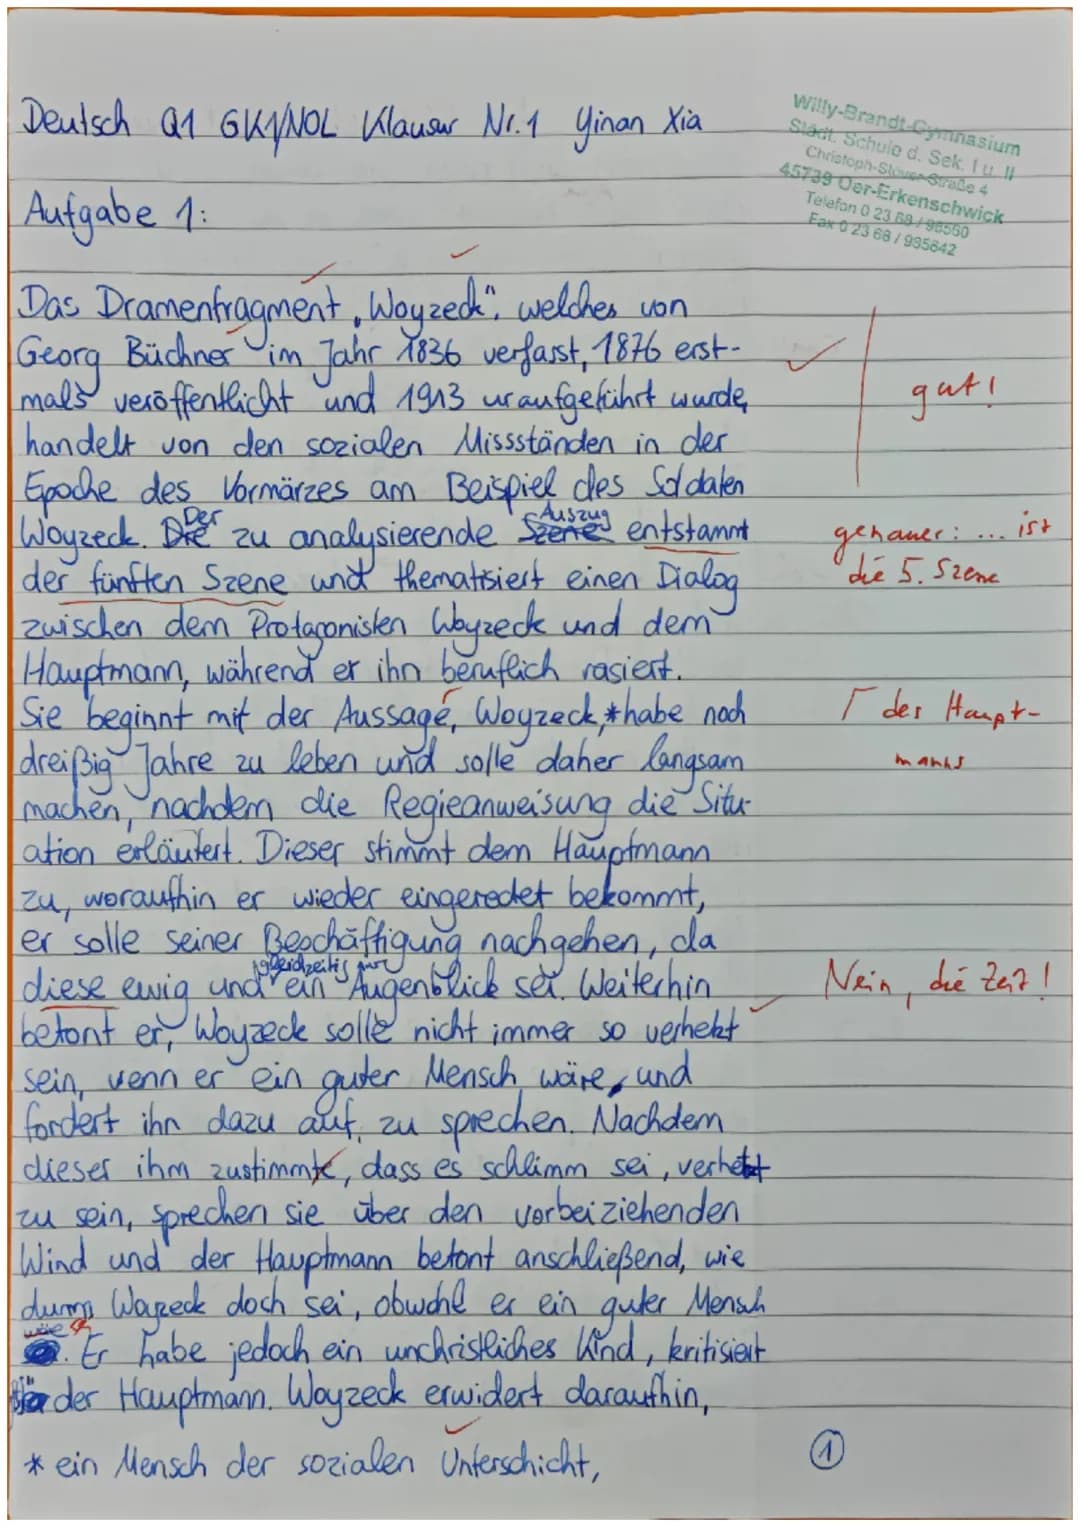 Deutsch Q1 GK1/NOL Klausur Nr.1 Yinan Xia
Willy-Brandt-Gymnasium
Städt. Schule d. Sek. I u. II
Christoph-Stöver-Straße 4
45739 Oer-Erkenschwick
Telefon 0 23 68 / 98560
Fax 0 23 68 / 985642
Aufgabe 1:
Das Dramenfragment „Woyzeck", welches von
Georg Büchner im Jahr 1836 verfasst, 1876 erst-
mals veröffentlicht und 1913 uraufgeführt wurde,
gut!
handelt von den sozialen Missständen in der
Epoche des Vormärzes am Beispiel des Soldaten
Woyzeck. Der zu analysierende Auszug entstammt
genauer: ... ist
der fünften Szene und thematisiert einen Dialog
die 5. Szene
zwischen dem Protagonisten Woyzeck und dem
Hauptmann, während er ihn beruflich rasiert.
Sie beginnt mit der Aussage, Woyzeck,* habe noch
Γ des Haupt-
dreißig Jahre zu leben und solle daher langsam
manns
machen, nachdem die Regieanweisung die Situ-
ation erläutert. Dieser stimmt dem Hauptmann
zu, woraufhin er wieder eingeredet bekommt,
er solle seiner Beschäftigung nachgehen, da
diese ewig und gleichzeitig nur ein Augenblick sei. Weiterhin
Nein, die Zeit!
betont er, Woyzeck solle nicht immer so verhetzt
sein, wenn er ein guter Mensch wäre, und
fordert ihn dazu auf, zu sprechen. Nachdem
dieser ihm zustimmt, dass es schlimm sei, verhetzt
zu sein, sprechen sie über den vorbeiziehenden
Wind und der Hauptmann betont anschließend, wie
dumm Woyzeck doch sei, obwohl er ein guter Mensch
wäre. Er habe jedoch ein unchristliches Kind, kritisiert
der Hauptmann. Woyzeck erwidert daraufhin,
* ein Mensch der sozialen Unterschicht,
1